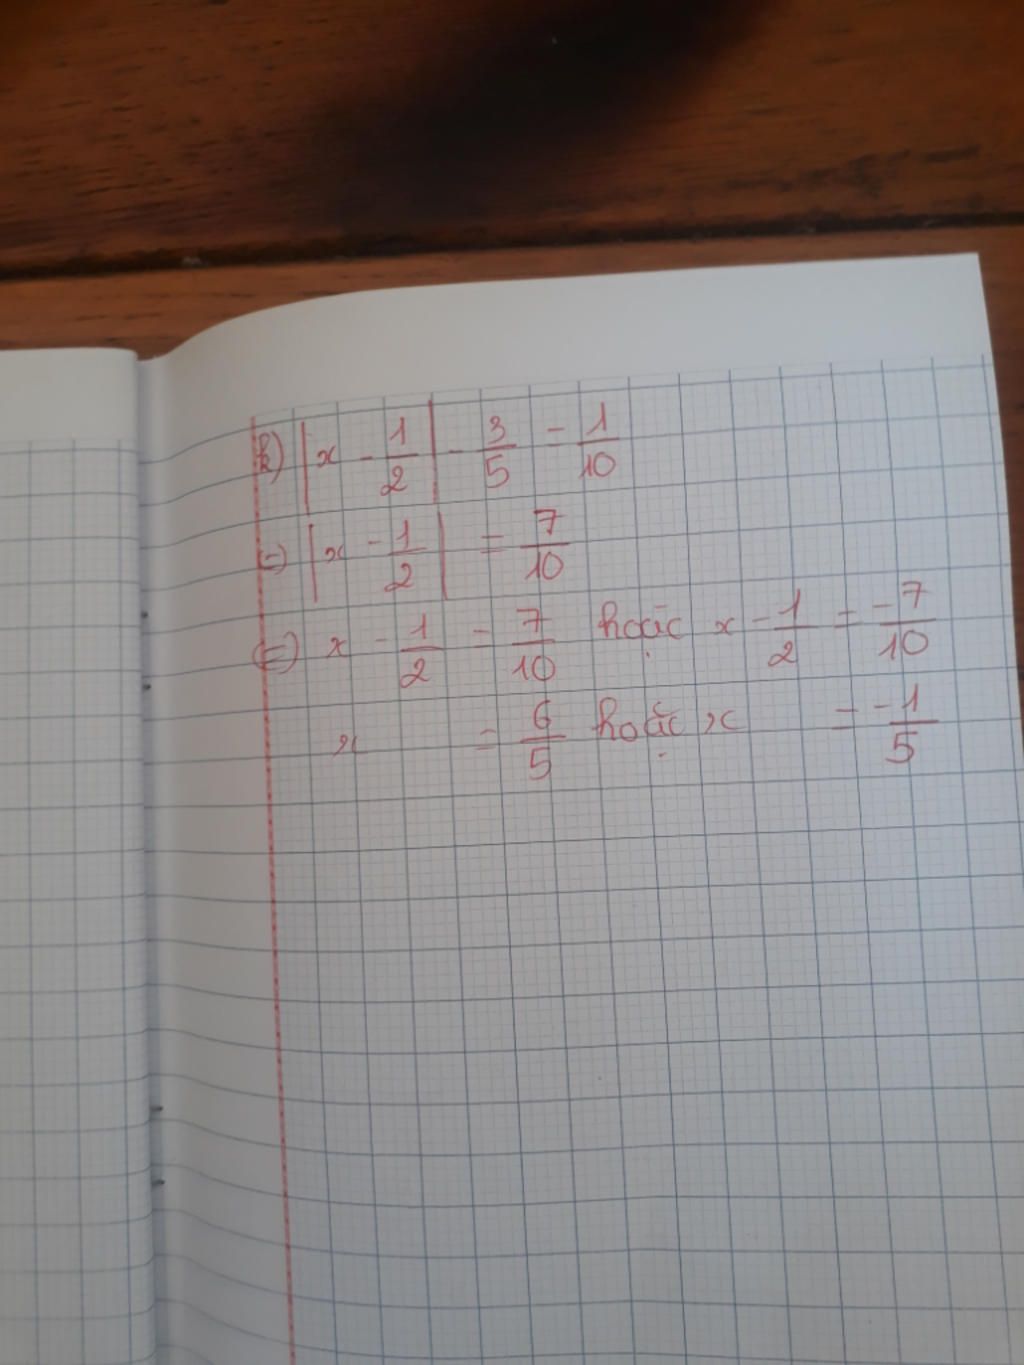 k) |x - 1/2| - 3/5 = 1/10
=) |x - 1/2| = 7/10
=) x - 1/2 = 7/10 hoặc x - 1/2 = -7/10
x = 6/5 hoặc x = -1/5